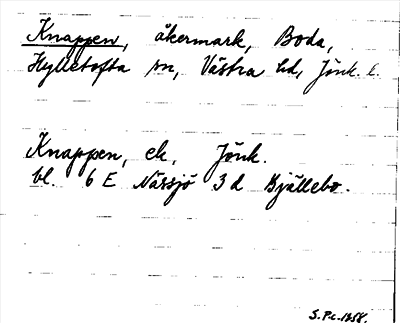 Knappen, åkermark, Boda,
Hylletofta sn, Västra hd, Jönk. l.
Knappen, ek, Jönk.
bl. 6 E Nässjö 3 d Gjällebo.
S. P:c. 1958.